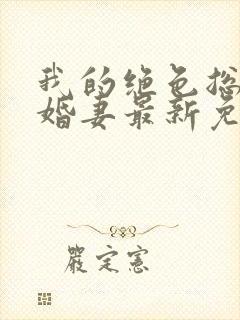 我的绝色总
婚妻最新免
严定宪